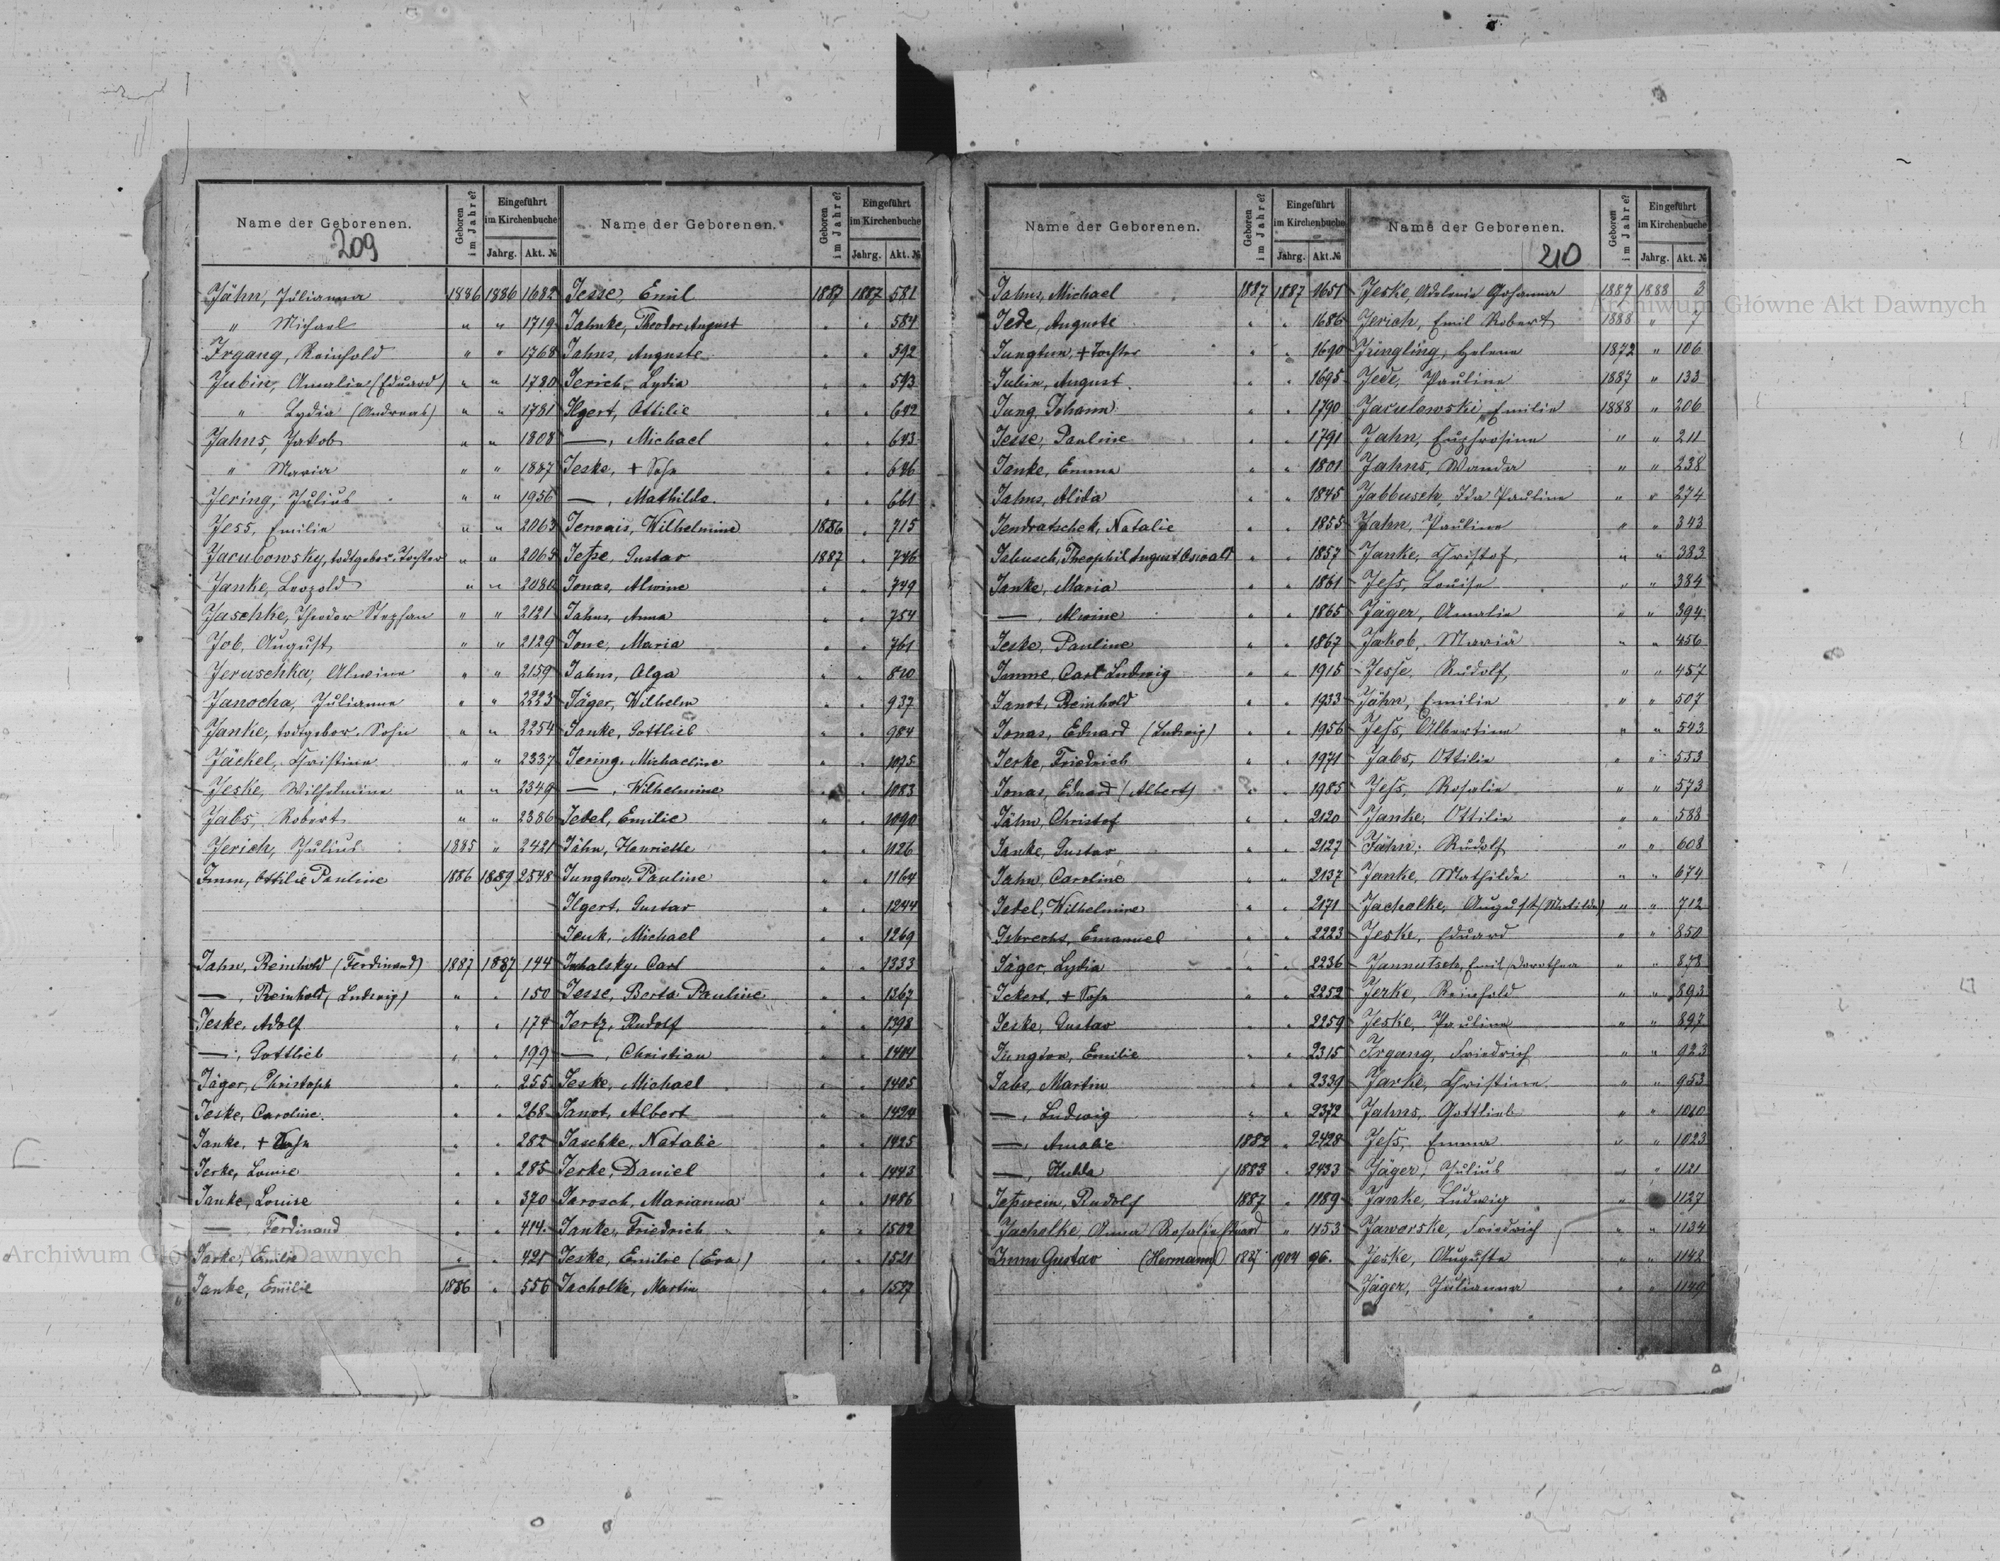 Name der Geborenen.
Geboren im Jahre?
Eingeführt im Kirchenbuche
Jahrg. Akt. №
209
Jähn, Julianna 1886 1886 1682
" Michael " " 1719
Irgang, Reinhold " " 1768
Jubin, Amalie (Eduard) " " 1780
" Lydia (Andreas) " " 1781
Jahns, Jakob " " 1808
" Maria " " 1887
Jering, Julius " " 1956
Jess, Emilie " " 2063
Jacubowsky, todtgebor. Tochter " " 2065
Janke, Leopold " " 2080
Jaschke, Theodor Stephan " " 2121
Job, August " " 2129
Jeruschka, Alwine " " 2159
Janocha, Julianna " " 2223
Janke, todtgebor. Sohn " " 2254
Jäckel, Christine " " 2337
Jeske, Wilhelmine " " 2349
Jabs, Robert " " 2386
Jerich, Julius 1885 " 2421
Imm, Ottilie Pauline 1886 1889 2548
Jahn, Reinhold (Ferdinand) 1887 1887 144
—, Reinhold (Ludwig) " " 150
Jeske, Adolf " " 174
—, Gottlieb " " 199
Jäger, Christoph " " 255
Jeske, Caroline " " 268
Janke, + Sohn " " 282
Jerke, Louise " " 285
Janke, Louise " " 370
— Ferdinand " " 414
Jarke, Emilie " " 421
Janke, Emilie 1886 " 556
Name der Geborenen.
Geboren im Jahre?
Eingeführt im Kirchenbuche
Jahrg. Akt. №
Jesse, Emil 1887 1887 581
Jahnke, Theodor August " " 584
Jahns, Auguste " " 592
Jerich, Lydia " " 593
Ilgert, Ottilie " " 642
—, Michael " " 643
Jeske, + Sohn " " 646
—, Mathilde " " 661
Jervais, Wilhelmine 1886 " 715
Jeße, Gustav 1887 " 746
Jonas, Alwine " " 749
Jahns, Anna " " 754
Jone, Maria " " 761
Jahns, Olga " " 820
Jäger, Wilhelm " " 937
Janke, Gottlieb " " 984
Jering, Michaeline " " 1075
—, Wilhelmine " " 1083
Jedel, Emilie " " 1090
Jähn, Henriette " " 1126
Jungton, Pauline " " 1164
Ilgert, Gustav " " 1244
Jeuk, Michael " " 1269
Carl " " 1333
Jesse, Berta Pauline " " 1367
Jertz, Rudolf " " 1398
—, Christian " " 1404
Jeske, Michael " " 1405
Janot, Albert " " 1424
Jaschke, Natalie " " 1425
Jeske, Daniel " " 1443
Jarosch, Marianna " " 1486
Janke, Friedrich " " 1502
Jeske, Emilie (Eva) " " 1521
Jacholke, Martin " " 1527
Name der Geborenen.
Geboren im Jahre?
Eingeführt im Kirchenbuche
Jahrg. Akt. №
Jahns, Michael 1887 1887 1651
Jede, Auguste " " 1686
Jungtun, + Tochter " " 1690
Julein, August " " 1695
Jung, Johann " " 1790
Jesse, Pauline " " 1791
Janke, Emma " " 1801
Jahns, Alida " " 1845
Jendratschek, Natalie " " 1855
Jabusch, Theophil August Oswalt " " 1857
Janke, Maria " " 1861
—, Alwine " " 1865
Jeske, Pauline " " 1867
Jamme, Carl Ludwig " " 1915
Janot, Reinhold " " 1933
Jonas, Eduard (Ludwig) " " 1956
Jeske, Friedrich " " 1971
Jonas, Eduard (Albert) " " 1985
Jähn, Christof " " 2120
Janke, Gustav " " 2127
Jahn, Caroline " " 2137
Jedel, Wilhelmine " " 2171
Isbrecht, Emanuel " " 2223
Jäger, Lydia " " 2236
Ickert, + Sohn " " 2252
Jeske, Gustav " " 2259
Jungton, Emilie " " 2315
Jabs, Martin " " 2339
—, Ludwig " " 2372
—, Amalie 1882 " 2428
—, Hulda 1883 " 2433
Jeßwein, Rudolf 1887 " 1189
Jacholke, Anna Rosalie Eduard " 1153
Imm Gustav (Hermann) 1887 1904 96.
Name der Geborenen.
Geboren im Jahre?
Eingeführt im Kirchenbuche
Jahrg. Akt. №
210
Jeske, Adelonie Johanna 1887 1888 3
Jerich, Emil Robert 1888 " 7
Jringling, Helene 1872 " 106
Jede, Pauline 1887 " 133
Jaculowski, Emilie 1888 " 206
Jahn, Euphrosine " " 211
Jahns, Wanda " " 238
Jabbusch, Ida Pauline " " 274
Jahn, Pauline " " 343
Janke, Christof " " 383
Jeß, Louise " " 384
Jäger, Amalie " " 394
Jakob, Maria " " 456
Jesse, Rudolf " " 457
Jähn, Emilie " " 507
Jeß, Albertine " " 543
Jabs, Ottilie " " 553
Jeß, Rosalie " " 573
Janke, Ottilie " " 588
Jähn, Rudolf " " 608
Janke, Mathilde " " 674
Jacholke, August (Matilda) " " 712
Jeske, Eduard " " 850
Jannutsch, Emil Dorothea " " 878
Jerke, Reinhold " " 893
Jeske, Pauline " " 897
Irgang, Friedrich " " 923
Jarke, Christine " " 953
Jahns, Gottlieb " " 1010
Jeß, Emma " " 1023
Jäger, Julius " " 1121
Janke, Ludwig " " 1127
Jaworske, Friedrich " " 1134
Jeske, Auguste " " 1148
Jäger, Julianna " " 1149
Archiwum Główne Akt Dawnych
Archiwum Główne Akt Dawnych